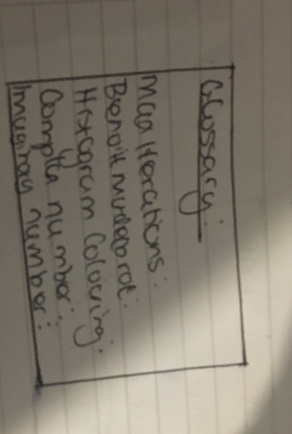 Glossary:
Max Iterations:
Benoit Mandelbrot:
Histogram Colouring:
Complex number:
Imaginary number: